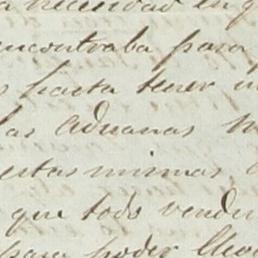 a necesidad en q
encontraba para
s hasta tener in
las aduanas
estas mismas
que todo vender
para poder llev